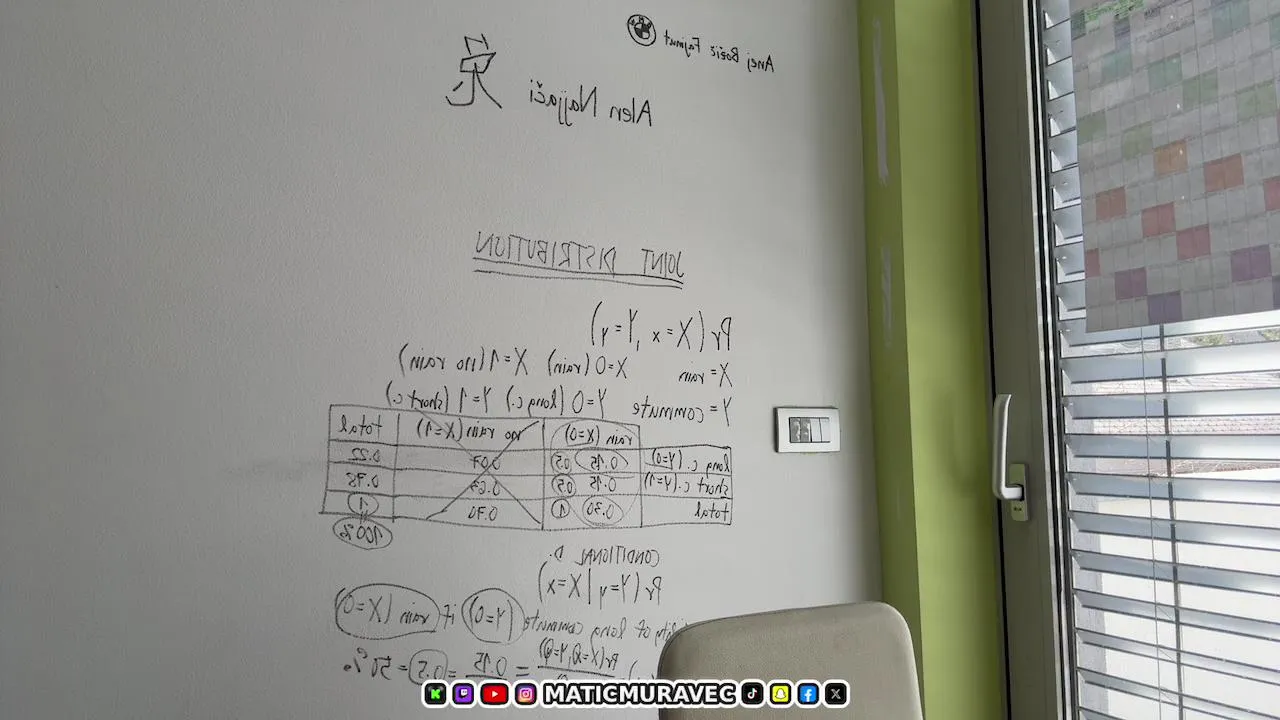 Anej Božič Fajmut
Alen Najjači
JOINT DISTRIBUTION
Pr (X = x, Y = y)
X = rain X=0 (rain) X=1 (no rain)
Y = commute Y=0 (long c.) Y=1 (short c.)
rain (X=0) no rain (X=1) total
long c. (Y=0) 0.15 0.5 0.07 0.22
short c. (Y=1) 0.15 0.5 0.63 0.78
total 0.30 1 0.70 1
100%
CONDITIONAL D.
Pr (Y=y | X=x)
of long commute (Y=0) if rain (X=0)
Pr(X=0, Y=0) = 0.15 = 0.5 = 50%
MATICMURAVEC